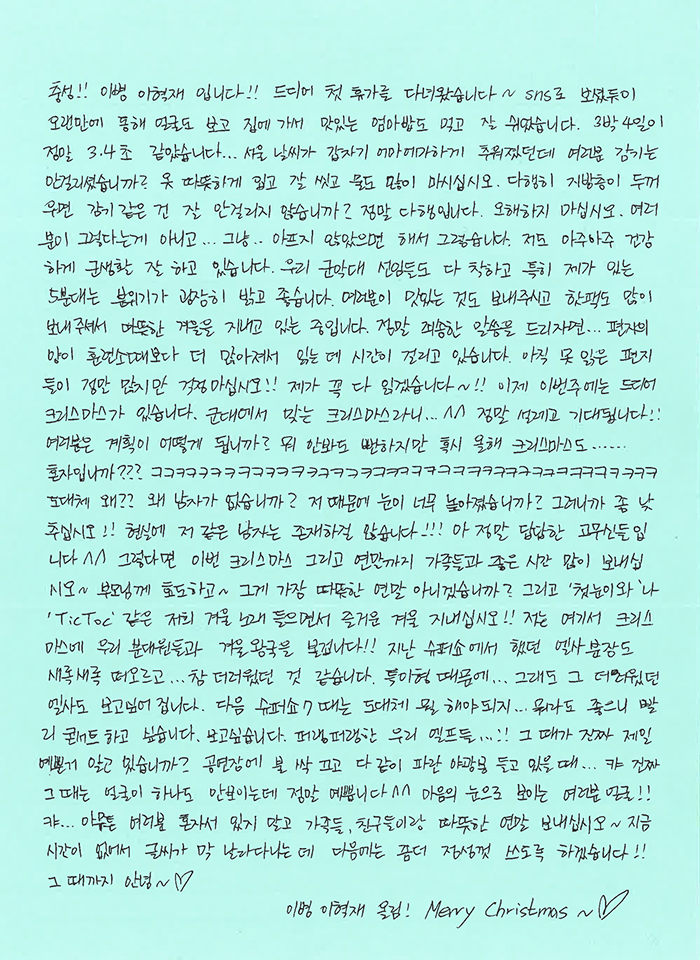 충성!! 이병 이혁재 입니다!! 드디어 첫 휴가를 다녀왔습니다~ sns로 보셨듯이
오랜만에 동해 얼굴도 보고 집에 가서 맛있는 엄마밥도 먹고 잘 쉬었습니다. 3박 4일이
정말 3.4초 같았습니다... 서울 날씨가 갑자기 어마어마하게 추워졌던데 여러분 감기는
안걸리셨습니까? 옷 따뜻하게 입고 잘 씻고 물도 많이 마시십시오. 다행히 지방층이 두꺼
우면 감기 같은 건 잘 안걸리지 않습니까? 정말 다행입니다. 오해하지 마십시오. 여러
분이 그렇다는게 아니고... 그냥.. 아프지 않았으면 해서 그렇습니다. 저도 아주아주 건강
하게 군생활 잘 하고 있습니다. 우리 군악대 선임들도 다 착하고 특히 제가 있는
5분대는 분위기가 굉장히 밝고 좋습니다. 여러분이 맛있는 것도 보내주시고 핫팩도 많이
보내주셔서 따뜻한 겨울을 지내고 있는 중입니다. 정말 죄송한 말씀을 드리자면... 편지의
양이 훈련소때보다 더 많아져서 읽는데 시간이 걸리고 있습니다. 아직 못 읽은 편지
들이 정말 많지만 걱정마십시오!! 제가 꼭 다 읽겠습니다~!! 이제 이번주에는 드디어
크리스마스가 있습니다. 군대에서 맞는 크리스마스라니... ^^ 정말 설레고 기대됩니다!!
여러분은 계획이 어떻게 됩니까? 뭐 안봐도 뻔하지만 혹시 올해 크리스마스도......
혼자입니까??? ㅋㅋㅋㅋㅋㅋㅋㅋㅋㅋㅋㅋㅋㅋㅋㅋㅋㅋㅋㅋㅋㅋㅋㅋㅋㅋㅋㅋㅋㅋㅋㅋㅋㅋ
도대체 왜?? 왜 남자가 없습니까? 저 때문에 눈이 너무 높아졌습니까? 그러니까 좀 낮
추십시오!! 현실에 저 같은 남자는 존재하질 않습니다!!! 아 정말 답답한 고무신들입
니다^^ 그렇다면 이번 크리스마스 그리고 연말까지 가족들과 좋은 시간 많이 보내십
시오~ 부모님께 효도하고~ 그게 가장 따뜻한 연말 아니겠습니까? 그리고 '첫눈이와'나
'TicToc' 같은 저희 겨울 노래 들으면서 즐거운 겨울 지내십시오!! 저는 여기서 크리스
마스에 우리 분대원들과 겨울왕국을 보겠니다!! 지난 슈퍼쇼에서 했던 엘사 분장도
새록새록 떠오르고... 참 더러웠던 것 같습니다. 특이형 때문에... 그래도 그 더러웠던
엘사도 보고싶어 집니다. 다음 슈퍼쇼7 때는 도대체 뭘 해야되지... 뭐라도 좋으니 빨
리 콘서트 하고 싶습니다. 보고싶습니다. 퍼랭퍼랭한 우리 엘프들...!! 그 때가 진짜 제일
예쁜거 알고 있습니까? 공연장에 불 싹 끄고 다 같이 파란 야광봉 들고 있을 때... 캬 진짜
그 때는 얼굴이 하나도 안보이는데 정말 예쁩니다^^ 마음의 눈으로 보이는 여러분 얼굴!!
캬... 아무튼 여러분 혼자서 있지 말고 가족들, 친구들이랑 따뜻한 연말 보내십시오~ 지금
시간이 없어서 글씨가 막 날라다니는데 다음에는 좀더 정성껏 쓰도록 하겠습니다!!
그 때까지 안녕~♡
이병 이혁재 올림! Merry Christmas~♡